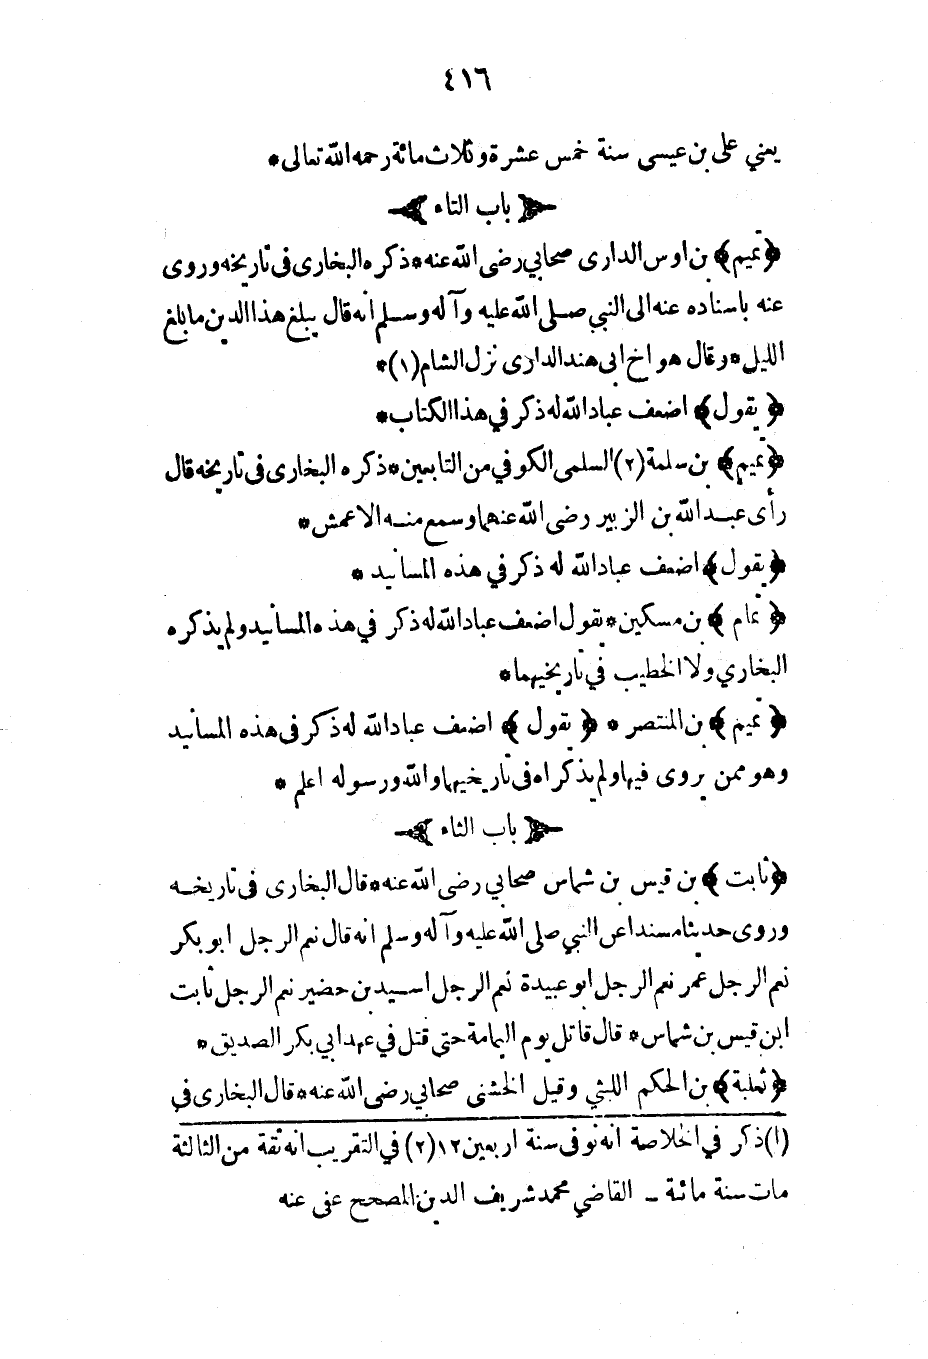 ٤١٦
يعني على بن عيسى سنة خمس عشرة وثلاث مائة رحمه الله تعالى*
باب التاء
﴿تميم﴾ بن اوس الدارى صحابي رضى الله عنه*ذكره البخارى فى تاريخه وروى
عنه باسناده عنه الى النبي صلى الله عليه وآله وسلم انه قال يبلغ هذا الدين ما بلغ
الليل*وقال هو اخ ابى هند الدارى نزل الشام(١)*
﴿يقول﴾ اضعف عباد الله له ذكر في هذا الكتاب*
﴿تميم﴾ بن سلمة(٢)السلمى الكوفي من التابعين*ذكره البخارى فى تاريخه قال
رأى عبد الله بن الزبير رضى الله عنهما وسمع منه الاعمش*
﴿يقول﴾ اضعف عباد الله له ذكر في هذه المسانيد *
﴿تمام﴾ بن مسكين*يقول اضعف عباد الله له ذكر في هذه المسانيد ولم يذكره
البخاري ولا الخطيب في تاريخيهما*
﴿تميم﴾ بن المنتصر * ﴿يقول﴾ اضعف عباد الله له ذكر فى هذه المسانيد
وهو ممن يروى فيها ولم يذكراه فى تاريخيهما والله ورسوله اعلم *
باب الثاء
﴿ثابت﴾ بن قيس بن شماس صحابي رضى الله عنه*قال البخارى فى تاريخه
وروى حديثا مسندا عن النبي صلى الله عليه وآله وسلم انه قال نعم الرجل ابو بكر
نعم الرجل عمر نعم الرجل ابو عبيدة نعم الرجل اسيد بن حضير نعم الرجل ثابت
ابن قيس بن شماس* قال قاتل يوم اليمامة حتى قتل في عهد ابي بكر الصديق*
﴿ثعلبة﴾ بن الحكم الليثي وقيل الخشنى صحابي رضى الله عنه*قال البخارى في
(١)ذكر في الخلاصة انه توفى سنة اربعين١٢(٢)في التقريب انه ثقة من الثالثة
مات سنة مائة – القاضي محمد شريف الدين المصحح عفى عنه